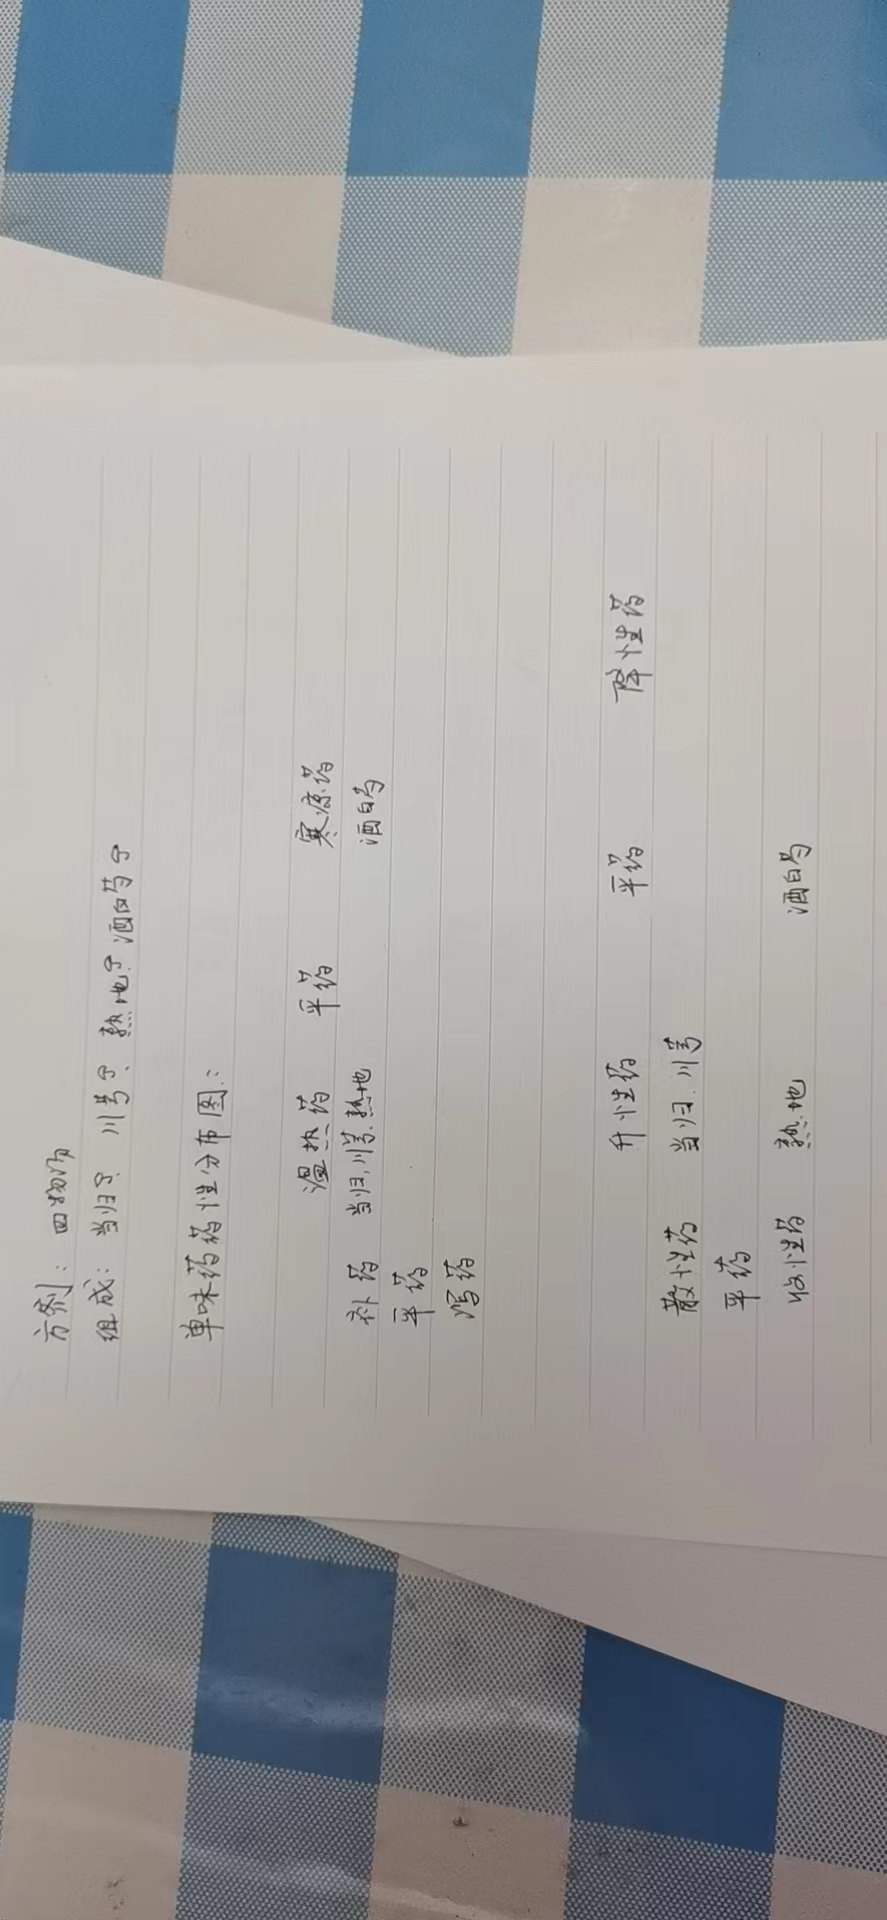 方剂：四物汤
组成：当归 川芎 熟地 酒白芍
单味药药性分布图：
温热药 平药 寒凉药
补药 当归、川芎、熟地 酒白芍
平药
泻药
升性药 平药 降性药
散性药 当归、川芎
平药
收性药 熟地 酒白芍